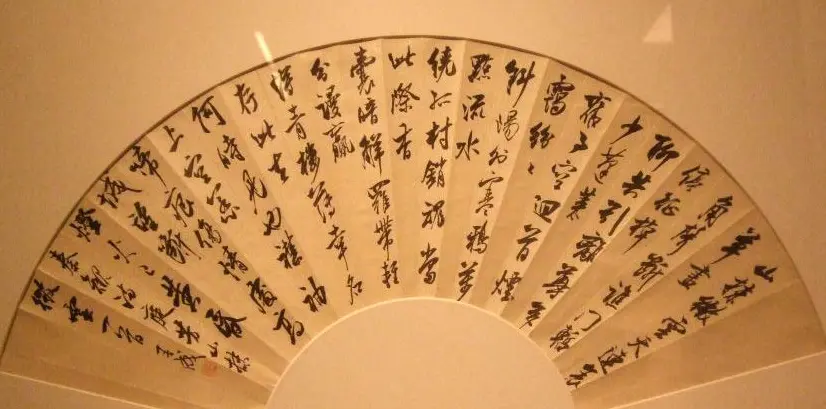 山抹微雲天連衰
草畫
角聲斷譙門暫
停征棹
聊共引離尊多
少蓬萊
舊事空回首煙
靄紛紛
斜陽外寒鴉萬
點流水
繞孤村銷魂當
此際香
囊暗解羅帶輕
分謾贏
得青樓薄幸名
存此去
何時見也襟袖
上空惹
啼痕傷情處高
城望斷
燈火已黃昏
秦觀滿庭芳山抹
微雲一首